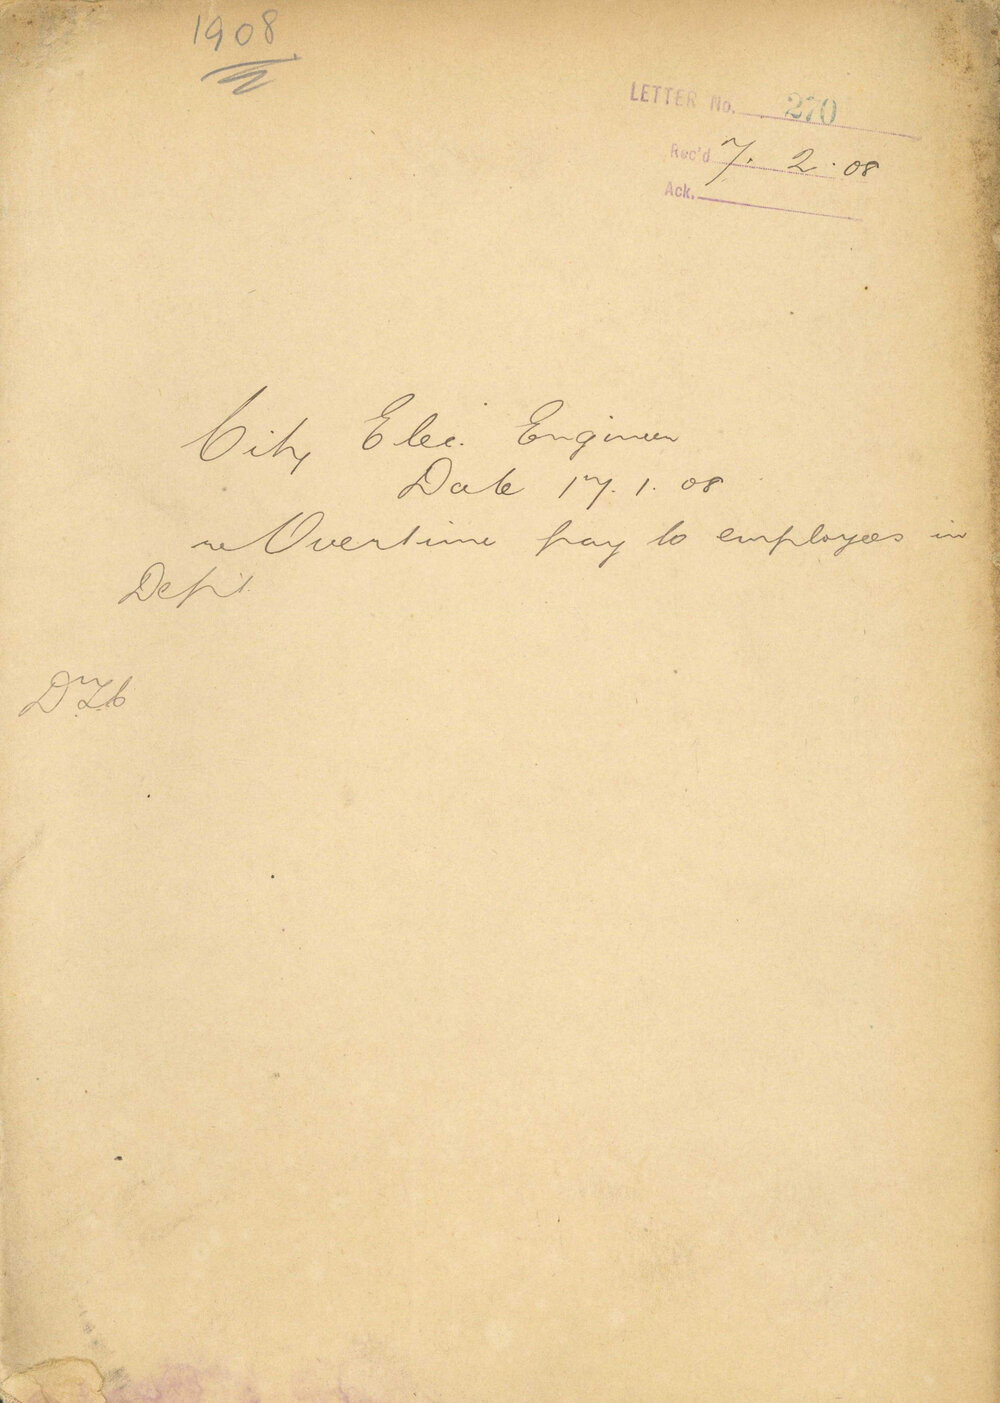 1908
LETTER No. 270
Rec'd 7. 2. 08
Ack.
City Elec. Engineer
Date 17. 1. 08
re Overtime pay to employees in
Dept.